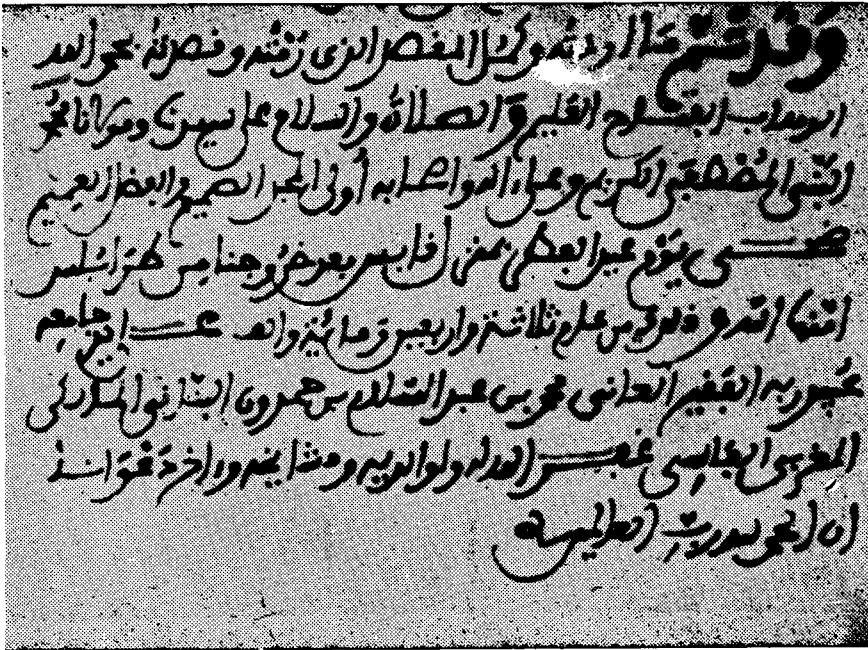 وقد تم ما اردته وكمل الغرض الذى رمته وقصدته بحمد الله
الوهاب الفتاح العليم والصلاة والسلام على سيدنا ومولانا محمد
النبى المصطفى الكريم وعلى ءاله واصحابه أولى المجد الصميم والفضل العميم
ضحى يوم عيد الفطر بمنزل بعد خروجنا من طرابلس
امنها الله وذلك من عام ثلاثة واربعين ومائة والف على يد جامعه
عبيد ربه الفقير الفانى محمد بن عبد السلام بن حمدون البنانى
المغربى الفاسى غفر الله له ولوالديه ومشايخه وءاخر دعوانا
ان الحمد لله رب العالمين